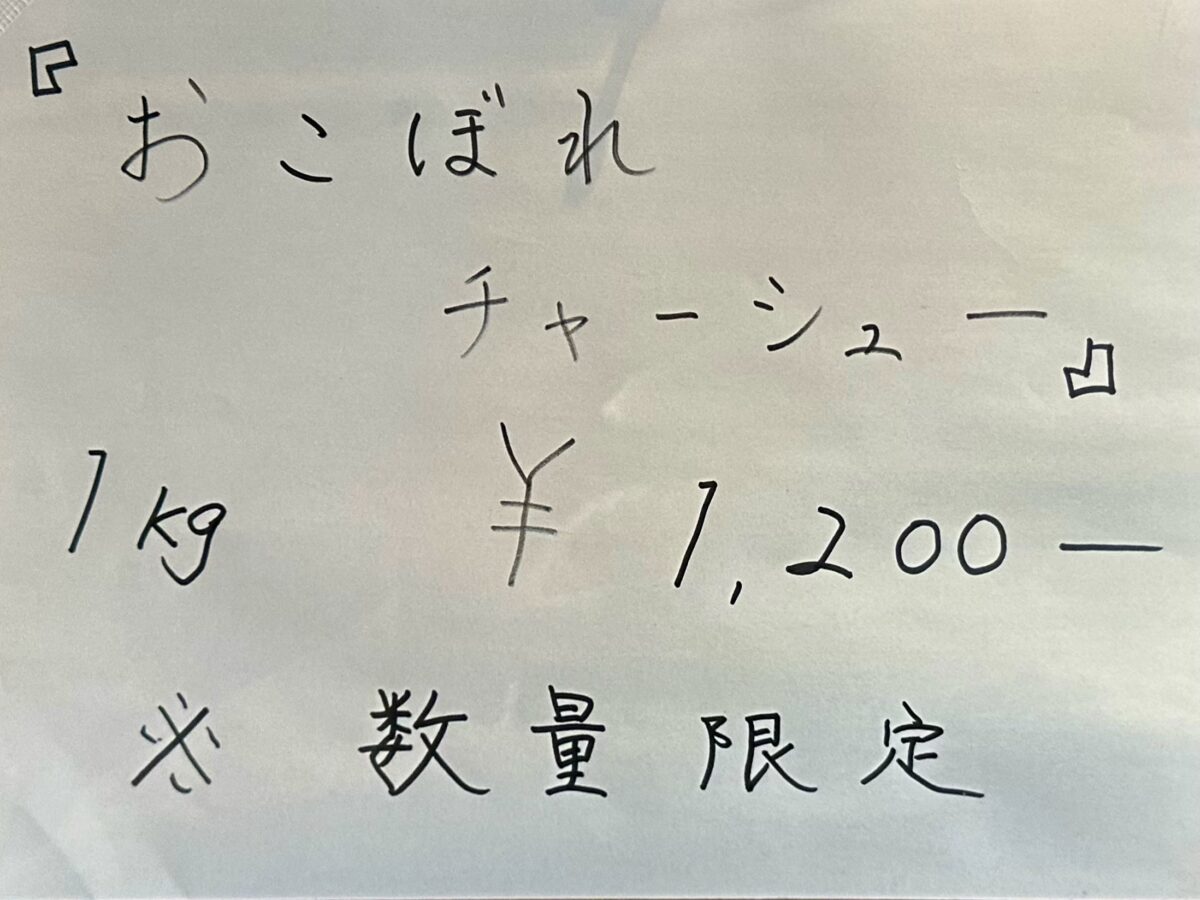 『おこぼれ
チャーシュー』
1kg ¥1,200―
※数量限定